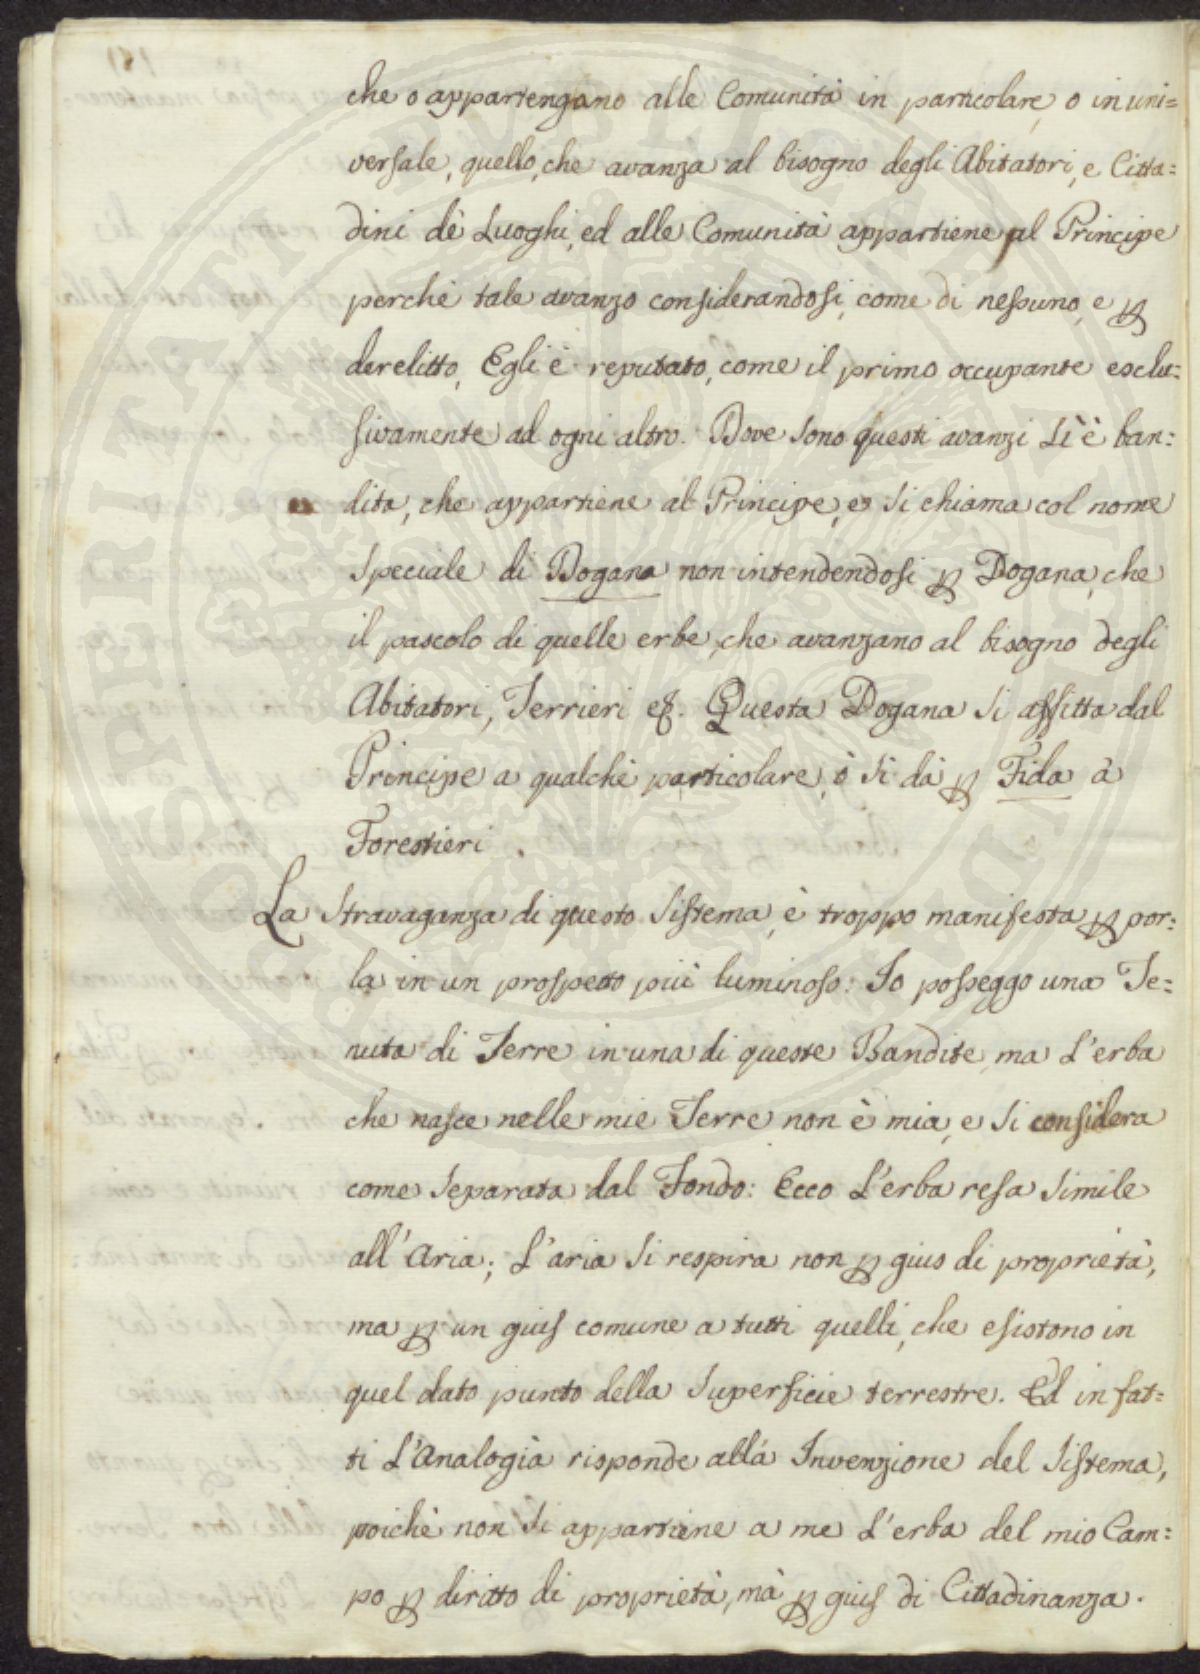 che o appartengano alle Comunità in particolare, o in uni=
versale, quello, che avanza al bisogno degli Abitatori, e Citta=
dini dè Luoghi, ed alle Comunità appartiene al Principe
perchè tale avanzo considerandosi, come di nessuno, e
derelitto, Egli è reputato, come il primo occupante esclu=
sivamente ad ogni altro. Dove sono questi avanzi Lì è ban=
dita, che appartiene al Principe, e si chiama col nome
speciale di Dogana non intendendosi Dogana, che
il pascolo di quelle erbe, che avanzano al bisogno degli
Abitatori, Terrieri &. Questa Dogana si affitta dal
Principe a qualchè particolare, ò si dà Fida à
Forestieri.
La Stravaganza di questo Sistema, è troppo manifesta por=
la in un prospetto più luminoso: Io posseggo una Te=
nuta di Terre in una di queste Bandite, ma L'erba
che nasce nelle mie Terre non è mia, e si considera
come separata dal Fondo: Ecco L'erba resa simile
all'Aria; L'aria si respira non gius di proprietà,
ma un gius comune a tutti quelli, che esistono in
quel dato punto della Superficie terrestre. Ed in fat=
ti L'Analogià risponde alla Invenzione del Sistema,
poichè non si appartiene a me L'erba del mio Cam=
po diritto di proprietà, mà gius di Cittadinanza.
PROSPERITATI PUBLICAE